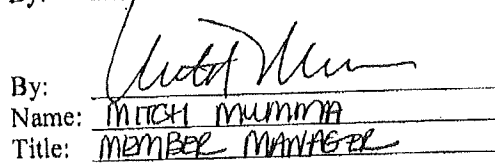 By:
By:
Name: MITCH MUMMA
Title: MEMBER MANAGER